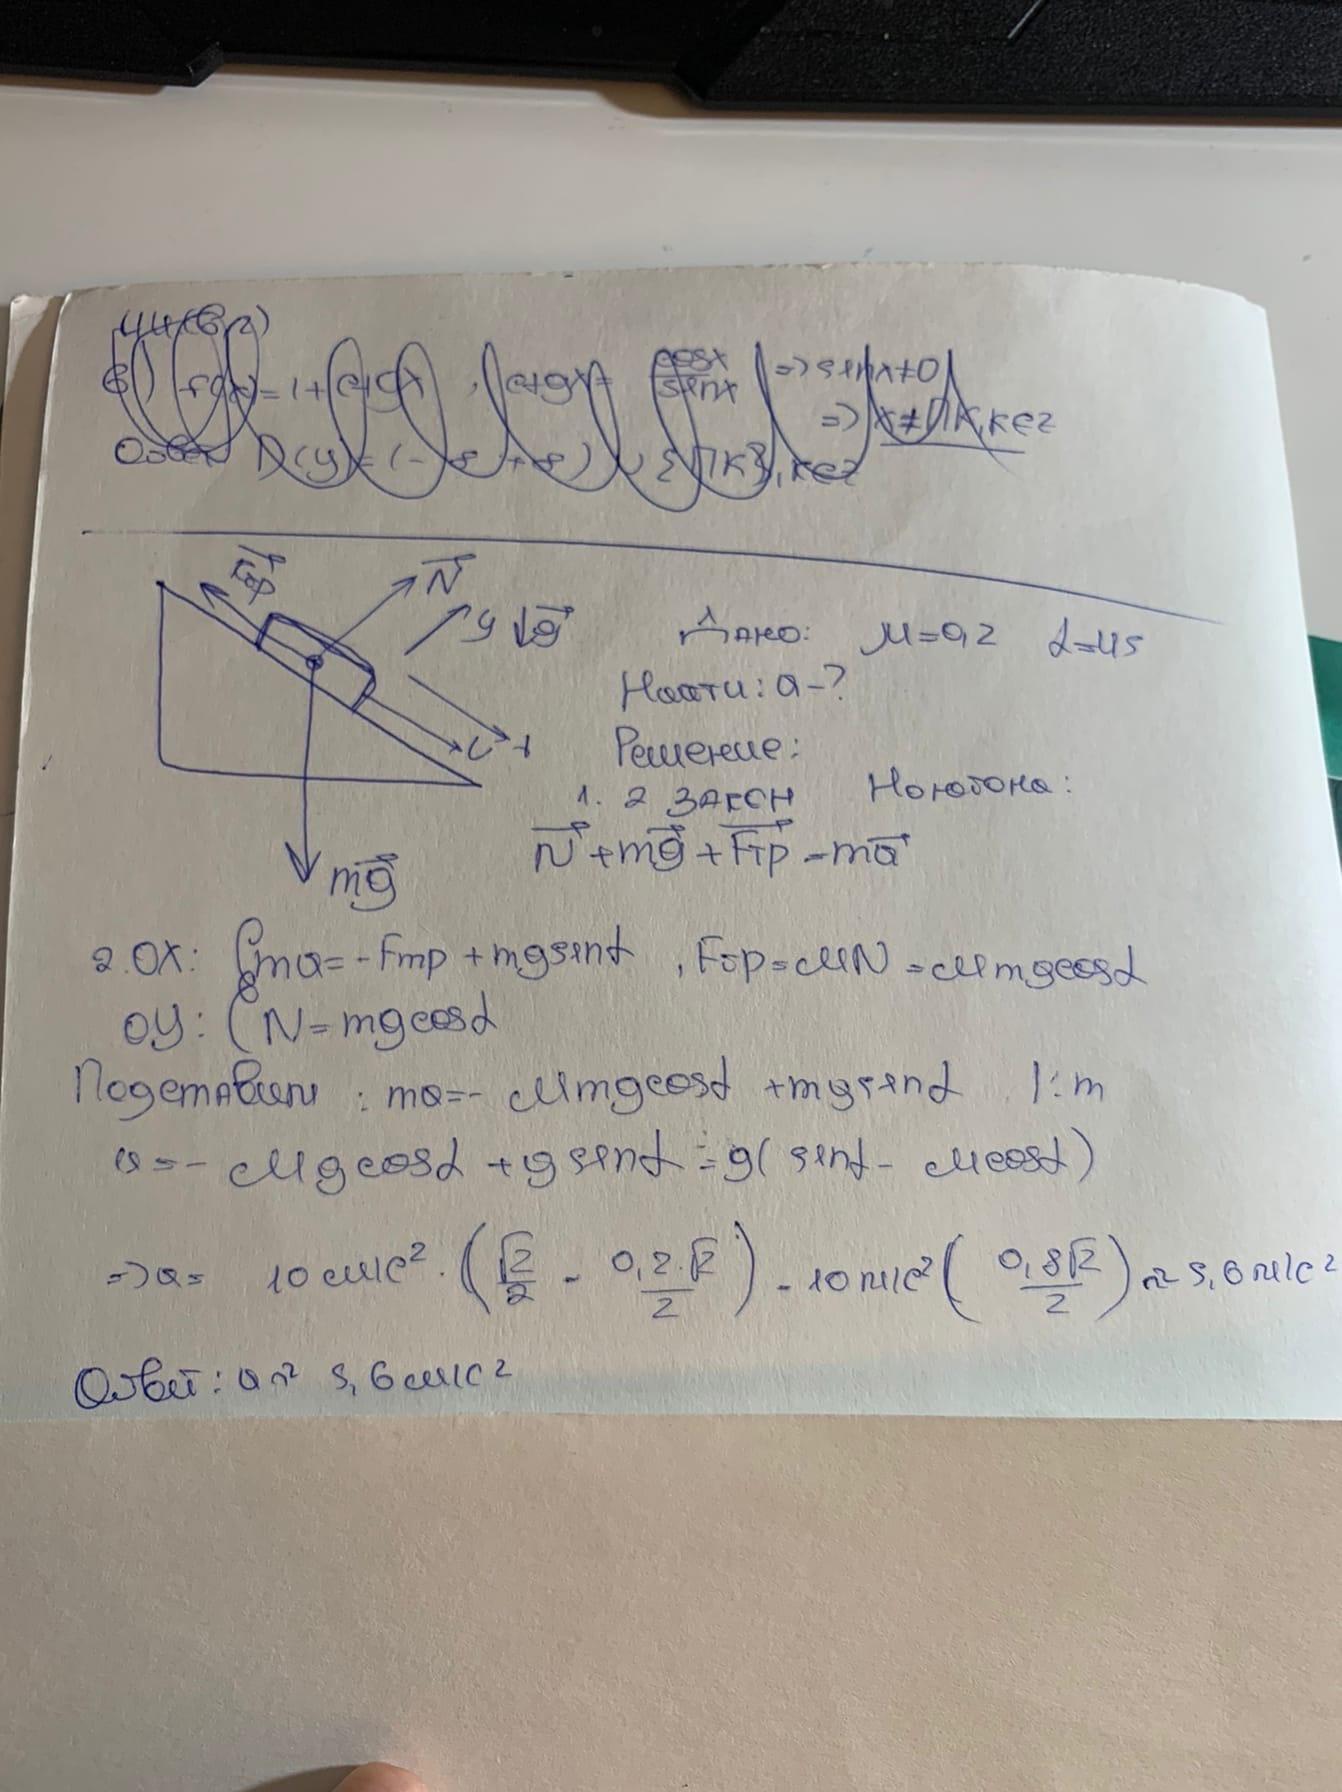 6) f(x) = 1 + ctgx , ctgx = cosx/sinx => sinx≠0
=> x≠Пк, к∈z
Ответ D(y) = (-∞ +∞) \ {Пк}, к∈z
Fтр N
y g
Дано: μ=0,2 α=45
Найти: a-?
x
Решение:
1. 2 закон Ньютона:
N + mg + Fтр = ma
mg
2. OX: { ma = -Fтр + mgsinα , Fтр = μN = μmgcosα
OY: { N = mgcosα
Подставим : ma = - μmgcosα + mgsinα |:m
a = - μgcosα + gsinα = g( sinα - μcosα)
=> a = 10 м/с² · (√2/2 - 0,2·√2/2) = 10 м/с² ( 0,8√2/2 ) ≈ 5,6 м/с²
Ответ: a ≈ 5,6 м/с²